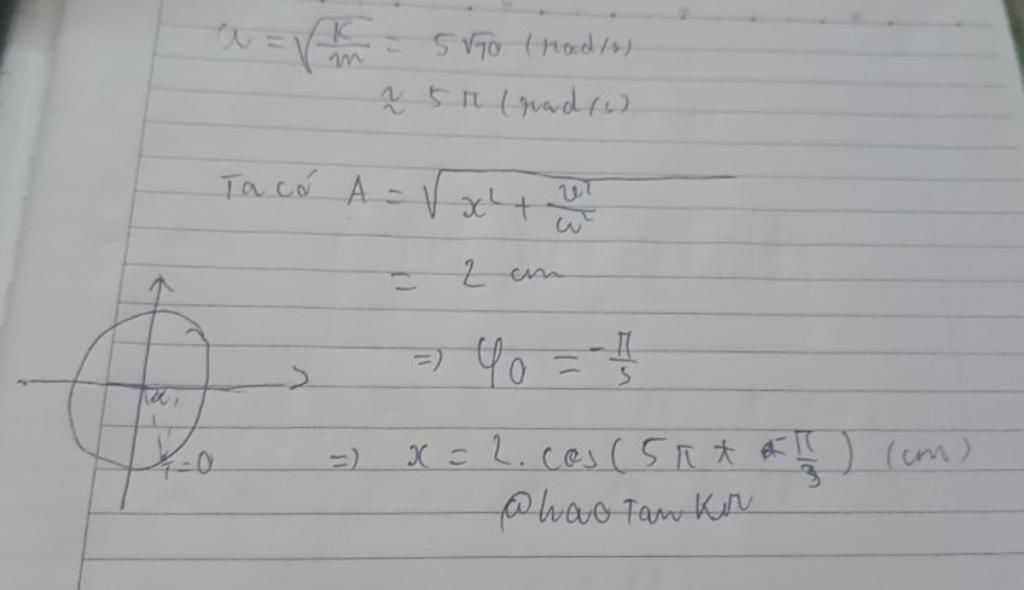 ω = √(k/m) = 5√10 (rad/s)
≈ 5π (rad/s)
Ta có A = √(x² + v²/ω²)
= 2 cm
=> φ0 = -π/3
α
T=0
=> x = 2. cos(5πt - π/3) (cm)
@haoTanKN